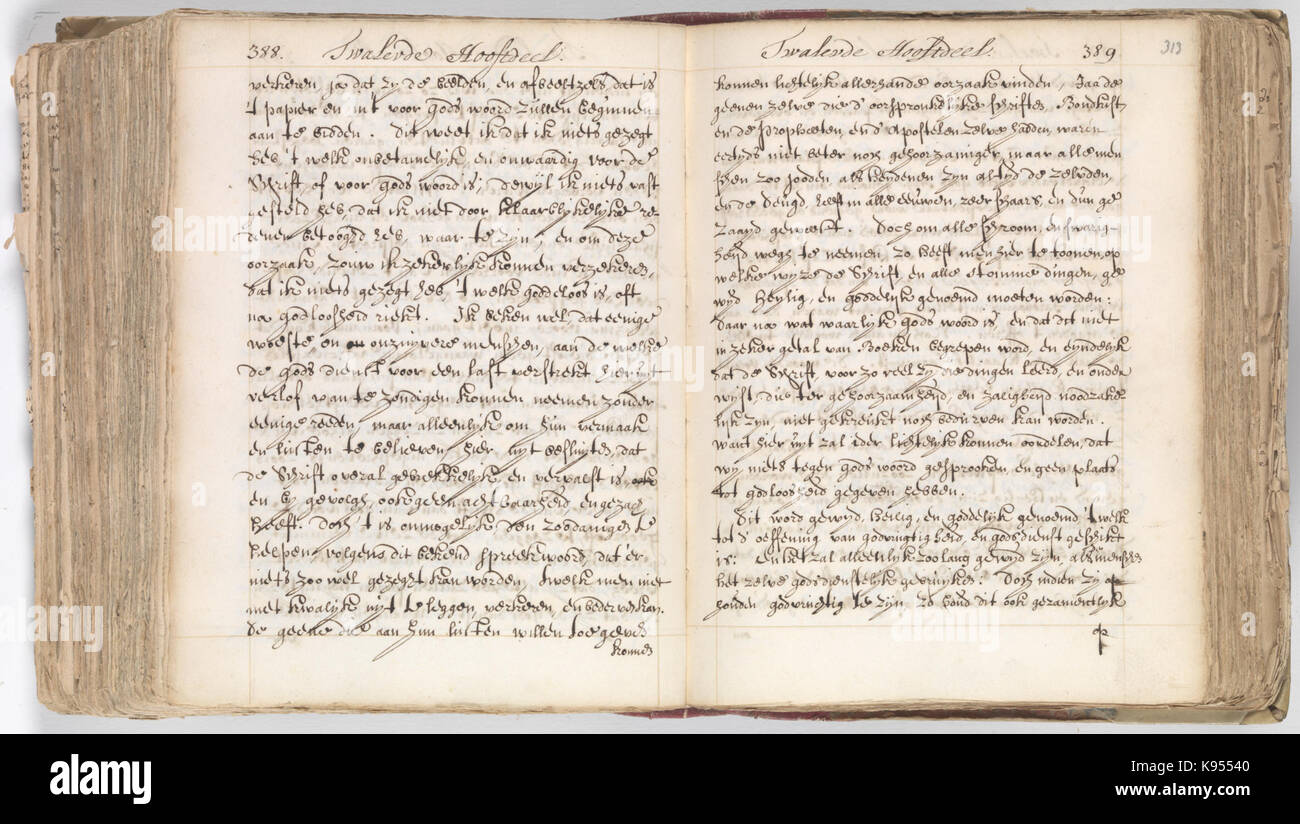 388. Twalevde Hooftdeel.
verkeren, ja dat zy de beelden, en afbeeltzels, dat is
't papier en int voor Gods woord zullen beginnen
aan te bidden. Dit weet ik dat ik niets gezegt
heb, 't welk onbetamelijk, en onwaardig voor de
Schrift, of voor gods woord is, dewijl ik niets vast
gesteld heb, dat ik niet door klaarblijkelijke re-
denen betoogd heb, waar te zijn; en om deze
oorzaak, zouw ik zekerlijk konnen verzekeren,
dat ik niets gezegt heb, 't welk goddeloos is, oft
na godloosheid riekt. Ik beken wel, dat eenige
woeste, en onzuyvere menschen, aan de welke
de gods dienst voor een last verstrekt hier uyt
verlof van te zondigen konnen neemen zonder
eenige reeden, maar alleenlijk om hun vermaak
en lusten te believen, hier uyt besluyten, dat
de Schrift overal gebrekkelijk, en vervalst is,
en by gevolgh, ook geen achtbaarheid, en gezag
heeft. Doch 't is onmogelijk, den zoodanigen te
helpen, volgens dit bekend spreekwoord, dat 'er
niets zoo wel gezeght kan worden, 't welk men niet
met kwalijk uyt te leggen, verkeren, en bederven kan.
De geene die aan hun lusten willen toegeven
konnen
Twalevde Hooftdeel. 389 313
konnen lichtelijk allerhande oorzaak vinden, Jaa de
geenen zelve die d' oorspronkelijke schriften, Bondkist
en de Propheeten, end' Apostelen zelve hadden, waren
eertyds niet beter noch gehoorzamiger, maar alle men
schen zoo jooden, als heydenen zyn altyd de zelvden,
en de deugd, heeft in alle eeuwen, zeer schaars, en dun ge
zaayd geweest. Doch om alle schroom, en swarig-
heyd wegh te neemen, zo heeft men hier te toonen, op
welke wyze de Schrift, en alle stomme dingen, ge
wyd heylig, en goddelijk genoemd moeten worden:
daar na wat waarlijk gods woord is, en dat dit niet
in zeker getal van Boeken begrepen word, en eyndelijk
dat de Schrift, voor zo veel zy die dingen leerd, en onder
wyst, die ter gehoorzaamheid, en zaligheyd noodzake
lijk zyn, niet gekrenkt noch bedurven kan worden.
want hier uyt zal ider lichtelijk konnen oordelen, dat
wy niets tegen gods woord gesprooken, en geen plaats
tot godloosheid gegeven hebben.
Dit word gewyd, heilig, en goddelijk genoemd, 't welk
tot d' oeffening van godvrugtigheid, en godsdienst geschikt
is: en het zal alleenlijk zoo lang gewyd zyn, als menschen
het zelve godsdienstelijk gebruyken: Doch indien zy op
houden godvruchtig te zyn, zo houd dit ook gezamentlijk
op
alamy stock photo
alamy
Image ID: K95540
www.alamy.com